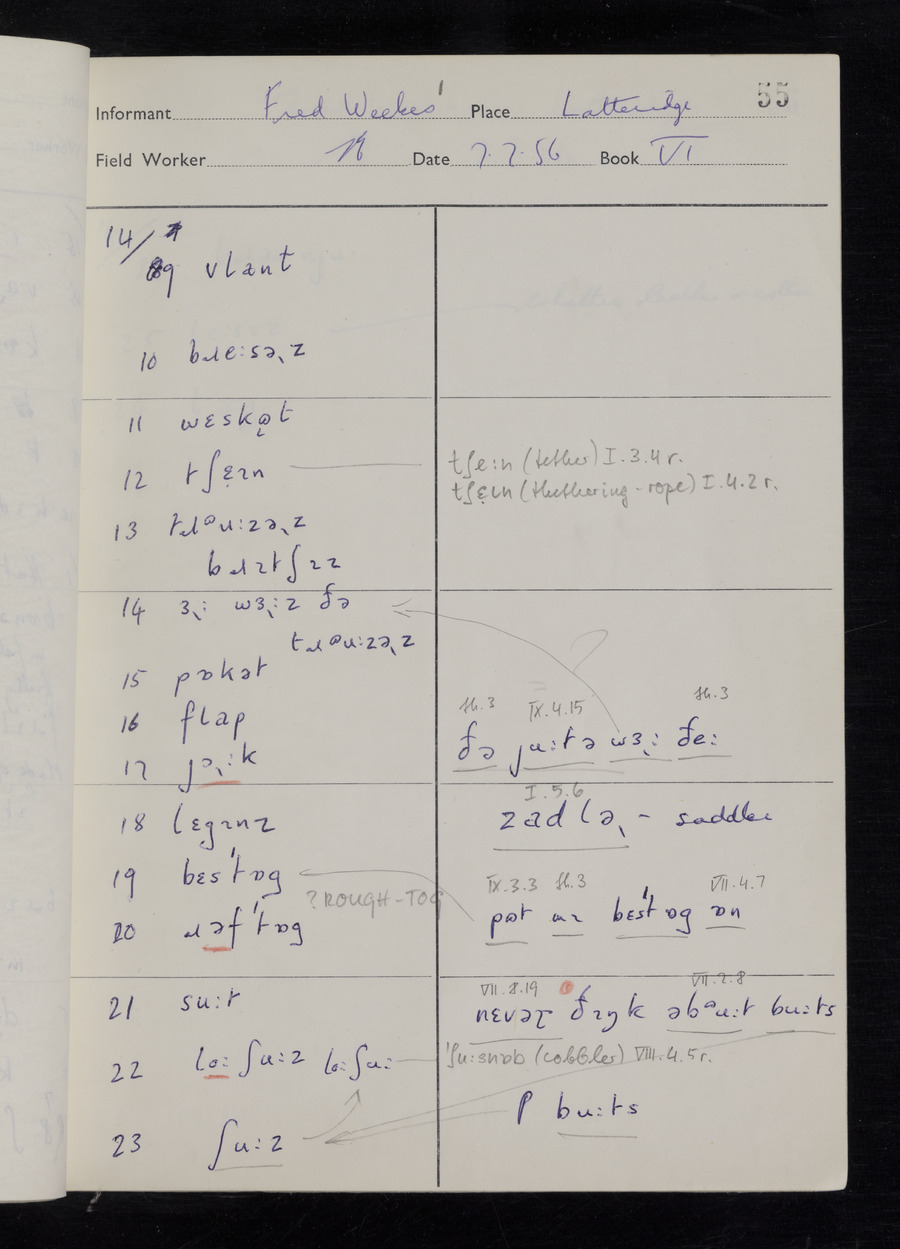 55
Informant Fred Weekes Place Latteridge
Field Worker Date 7.7.56 Book VI
14/
9 vlant
10 bɹe:səʴz
11 wɛskət
12 tʃɛɪn
tʃe:n (tether) I.3.4 r.
tʃɛɪn (thethering-rope) I.4.2 r.
13 tɹəu:zəʴz
bɹɪtʃɪz
14 ɜʴ: wɜʴ:z ðə
tɹəu:zəʴz
15 pɒkət
16 flap
17 jəʴ:k
th.3 IX.4.15 th.3
ðə ju:tə wɜʴ: ðe:
18 legɪnz
I.5.6
zadləʴ - saddler
19 bɛs'tɒg
? ROUGH-TOG
20 ɹəf'tɒg
IX.3.3 th.3 VII.4.7
pət ɪz bɛst'ɒg ɒn
21 su:t
VII.8.19 VII.2.8
nɛvəʴ ðɪŋk əbəu:t bu:ts
22 lo: ʃu:z lo: ʃu:
ʃu:snɒb (cobbler) VIII.4.5 r.
P bu:ts
23 ʃu:z